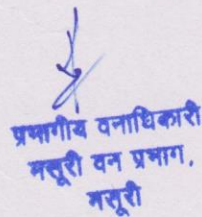 प्रभागीय वनाधिकारी
मसूरी वन प्रभाग,
मसूरी